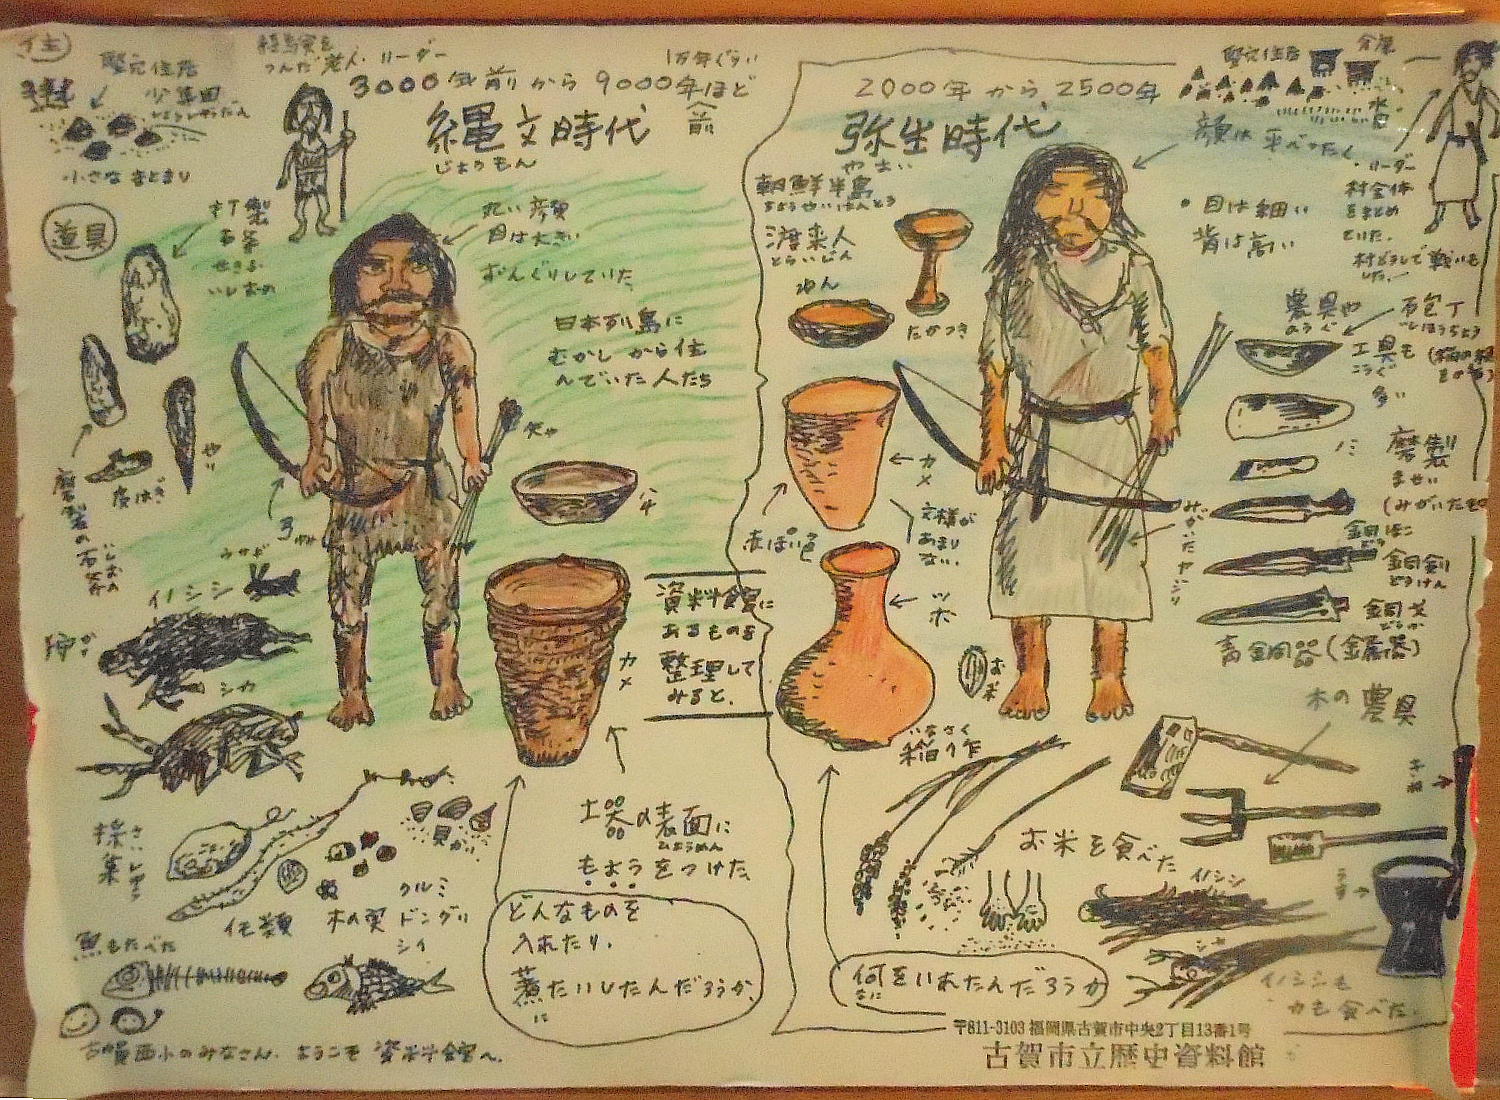 住
竪穴住居
少集団
しょうしゅうだん
小さなまとまり
経験を
つんだ老人・リーダー
1万年ぐらい
3000年前から9000年ほど
前
縄文時代
じょうもん
道具
打製
石斧
せきふ
いしおの
丸い顔
目は大きい
ずんぐりしていた
日本列島に
むかしから住
んでいた人たち
やり
皮はぎ
磨製の石斧
いしおの
弓
ゆみ
矢や
ハチ
カメ
ウサギ
イノシシ
シカ
採集
さいしゅう
イモ類
木の実
クルミ
ドングリ
シイ
貝かい
魚もたべた
資料館に
あるものを
整理して
みると、
土器の表面に
ひょうめん
もようをつけた
どんなものを
入れたり、
煮たいしたんだろうか、
に
古賀西小のみなさん、ようこそ資料館へ、
2000年から2500年
弥生時代
やよい
朝鮮半島
ちょうせんはんとう
渡来人
とらいじん
わん
たかつき
カメ
文様が
あまり
ない、
赤ぽい色
ツボ
もみ
竪穴住居
水田
顔は平べったく
・目は細い
背は高い
リーダー
村全体
をまとめ
ていた。
村どうしで戦いも
した。
農具や
のうぐ
工具も
こうぐ
多い
石包丁
いしぼうちょう
ノミ
磨製
ませい
(みがいたもの
みがいたヤジリ
銅ほこ
銅剣
どうけん
銅戈
どうか
青銅器(金属器)
木の農具
いなさく
稲作
お米を食べた
きね
うす
イノシシ
シカ
イノシシも
シカも食べた、
何をいれたんだろうか
なに
〒811-3103 福岡県古賀市中央2丁目13番1号
古賀市立歴史資料館